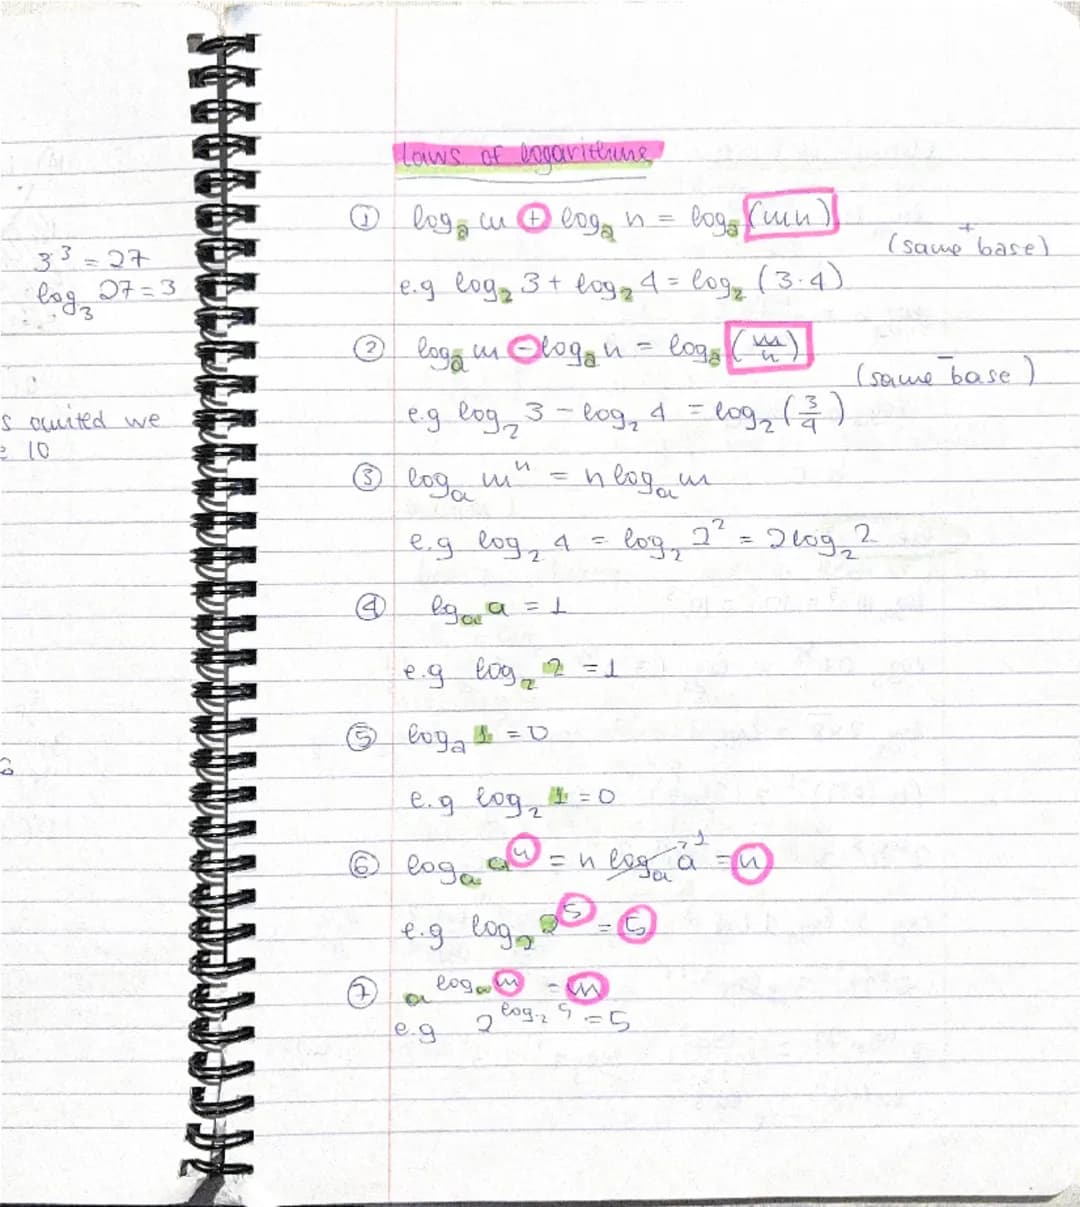 3³ = 27
log₃ 27 = 3
s omited we
10
Laws of logarithms
① logₐ m + logₐ n = logₐ (mn)
(same + base)
e.g log₂ 3 + log₂ 4 = log₂ (3·4)
② logₐ m - logₐ n = logₐ (m/n)
(same - base)
e.g log₂ 3 - log₂ 4 = log₂ (3/4)
③ logₐ mⁿ = n logₐ m
e.g log₂ 4 = log₂ 2² = 2log₂ 2
④ lgₐ a = 1
e.g log₂ 2 = 1
⑤ logₐ 1 = 0
e.g log₂ 1 = 0
⑥ logₐ aⁿ = n logₐ a 1 = n
e.g log₂ 2⁵ = 5
⑦ a^logₐ m = m
e.g 2^log₂ 5 = 5